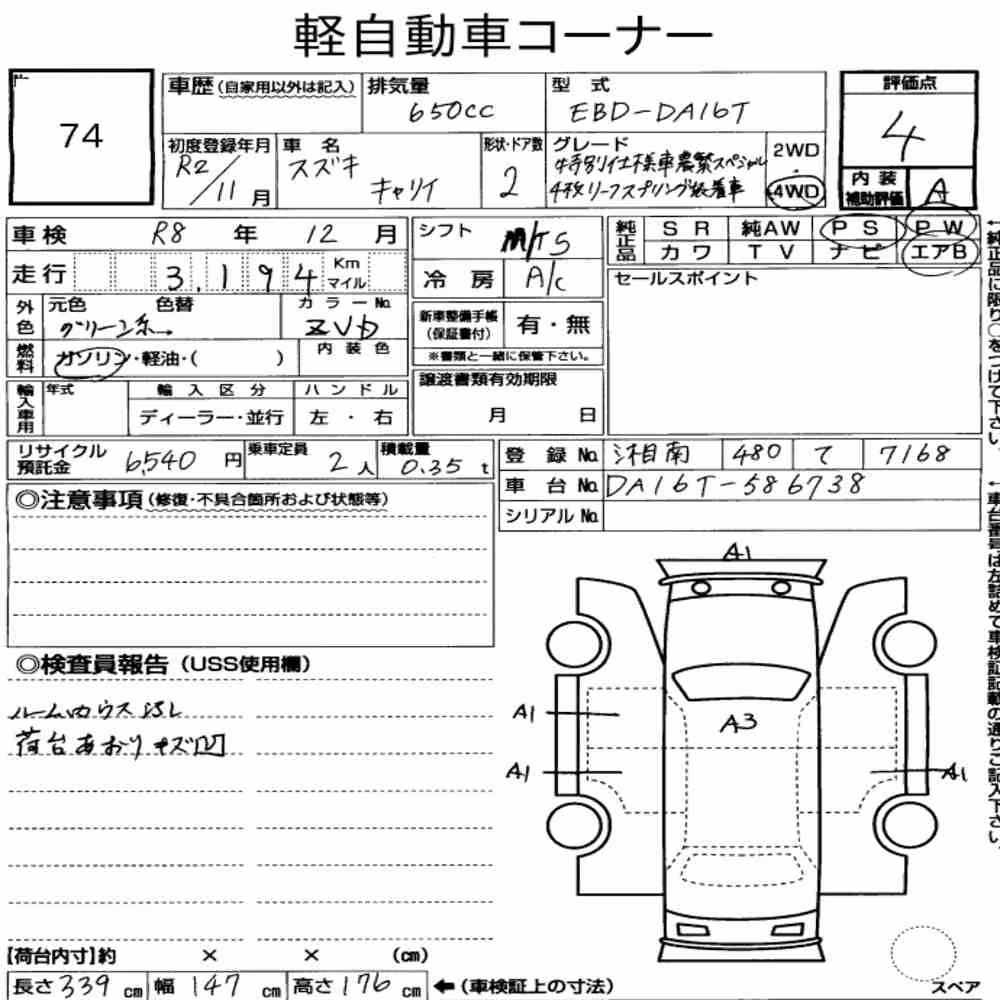 軽自動車コーナー
74
車歴(自家用以外は記入) 排気量 650cc 型式 EBD-DA16T 評価点 4
初度登録年月 R2/11月 車名 スズキ キャリイ 形状・ドア数 2 グレード 特別仕様車農繁スペシャル 4枚リーフスプリング装着車 2WD 4WD 内装補助評価 A
車検 R8 年 12 月
走行 3,194 Km マイル
外色 元色 グリーン系 色替 カラーNo. ZVD
燃料 ガソリン・軽油・( ) 内装色
輸入車用 年式 輸入区分 ディーラー・並行 ハンドル 左・右
シフト M/T5
冷房 A/c
新車整備手帳(保証書付) 有・無
※書類と一緒に保管下さい。
譲渡書類有効期限
月 日
純正品 SR 純AW PS PW
カワ TV ナビ エアB
セールスポイント
←純正品に限り○をつけて下さい。
リサイクル預託金 6,540 円 乗車定員 2人 積載量 0.35 t
登録No. 湘南 480 て 7168
車台No. DA16T-586738
シリアルNo.
←車台番号は左詰めで車検証記載の通りご記入下さい。
◎注意事項(修復・不具合箇所および状態等)
◎検査員報告(USS使用欄)
荷台あおりキズ凹
A1
A1
A3
A1
A1
【荷台内寸】約 × × (cm)
長さ 339 cm 幅 147 cm 高さ 176 cm ←(車検証上の寸法)
スペア